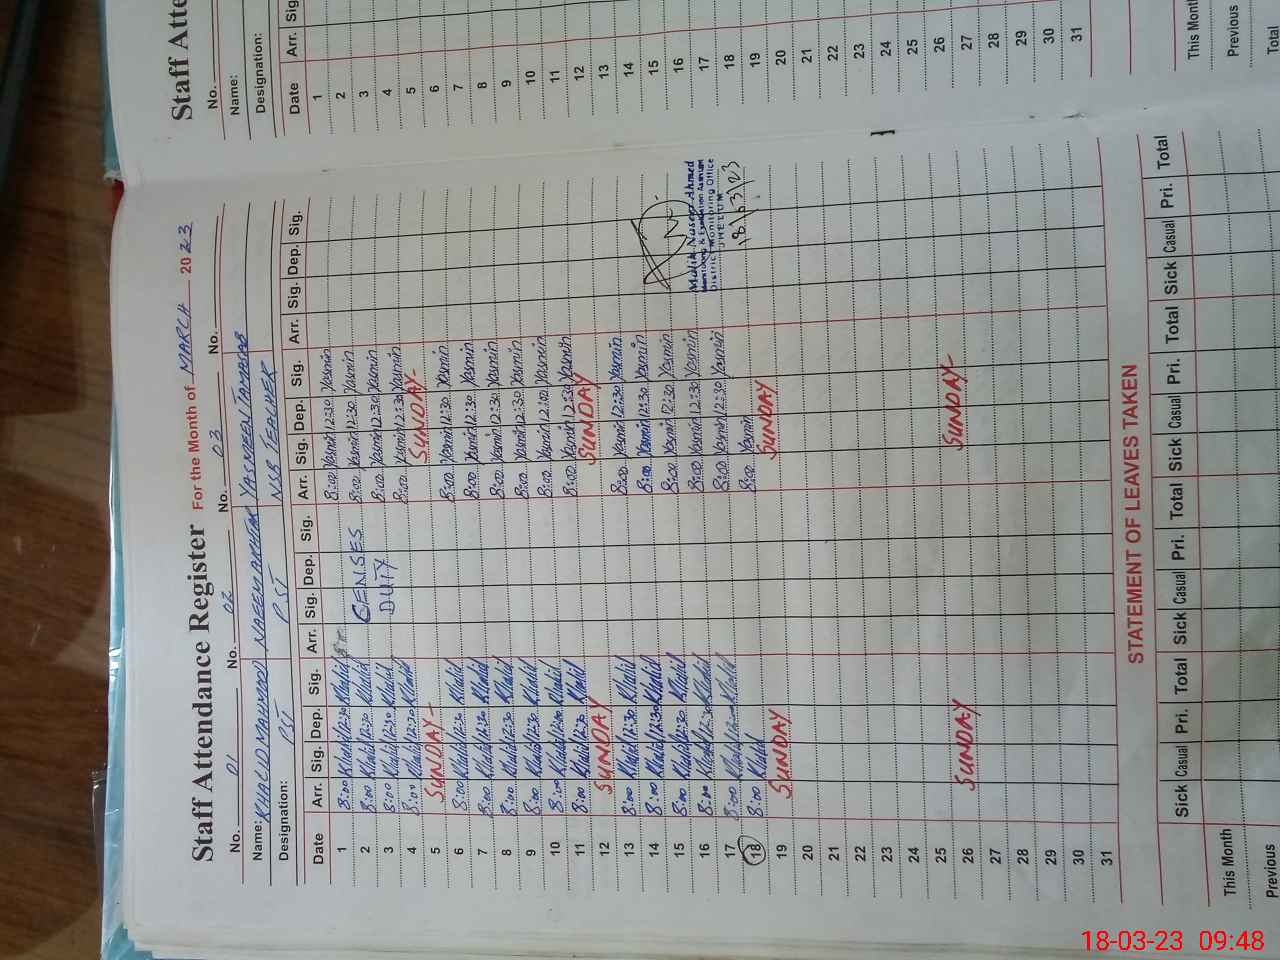 Staff Attendance Register For the Month of MARCH 2023
No. 01 No. 02 No. 03 No.
Name: KHALID MAHMOOD NAEEM AKHTAR YASMEEN TABASSAB
Designation: PST PST NSB TEACHER
Date Arr. Sig. Dep. Sig. Arr. Sig. Dep. Sig. Arr. Sig. Dep. Sig. Arr. Sig. Dep. Sig.
1 8:00 Khalid 12:30 Khalid 8:00 Yasmin 12:30 Yasmin
2 8:00 Khalid 12:30 Khalid CENSES 8:00 Yasmin 12:30 Yasmin
3 8:00 Khalid 12:30 Khalid DUTY 8:00 Yasmin 12:30 Yasmin
4 8:00 Khalid 12:30 Khalid 8:00 Yasmin 12:30 Yasmin
5 SUNDAY SUNDAY
6 8:00 Khalid 12:30 Khalid 8:00 Yasmin 12:30 Yasmin
7 8:00 Khalid 12:30 Khalid 8:00 Yasmin 12:30 Yasmin
8 8:00 Khalid 12:30 Khalid 8:00 Yasmin 12:30 Yasmin
9 8:00 Khalid 12:30 Khalid 8:00 Yasmin 12:30 Yasmin
10 8:00 Khalid 12:00 Khalid 8:00 Yasmin 12:00 Yasmin
11 8:00 Khalid 12:30 Khalid 8:00 Yasmin 12:30 Yasmin
12 SUNDAY SUNDAY
13 8:00 Khalid 12:30 Khalid 8:00 Yasmin 12:30 Yasmin
14 8:00 Khalid 12:30 Khalid 8:00 Yasmin 12:30 Yasmin
15 8:00 Khalid 12:30 Khalid 8:00 Yasmin 12:30 Yasmin
16 8:00 Khalid 12:30 Khalid 8:00 Yasmin 12:30 Yasmin
17 8:00 Khalid 12:00 Khalid 8:00 Yasmin 12:30 Yasmin
18 8:00 Khalid 8:00 Yasmin
Malik Naseer Ahmed
Monitoring & Evaluation Assistant
District Monitoring Office
JHELUM
18/03/23
19 SUNDAY SUNDAY
20
21
22
23
24
25
26 SUNDAY SUNDAY
27
28
29
30
31
STATEMENT OF LEAVES TAKEN
Sick Casual Pri. Total Sick Casual Pri. Total Sick Casual Pri. Total Sick Casual Pri. Total
This Month
Previous
Staff Atte
No.
Name:
Designation:
Date Arr. Sig
1
2
3
4
5
6
7
8
9
10
11
12
13
14
15
16
17
18
19
20
21
22
23
24
25
26
27
28
29
30
31
This Month
Previous
Total
18-03-23 09:48